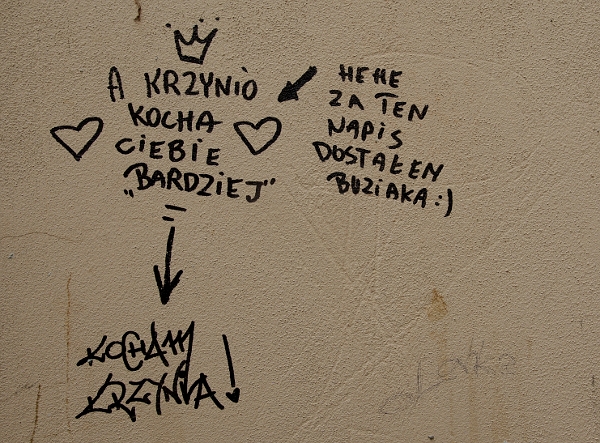 A KRZYNIO
KOCHA
CIEBIE
„BARDZIEJ”
=
HEHE
ZA TEN
NAPIS
DOSTAŁEM
BUZIAKA :)
KOCHAM
KRZYNIA!